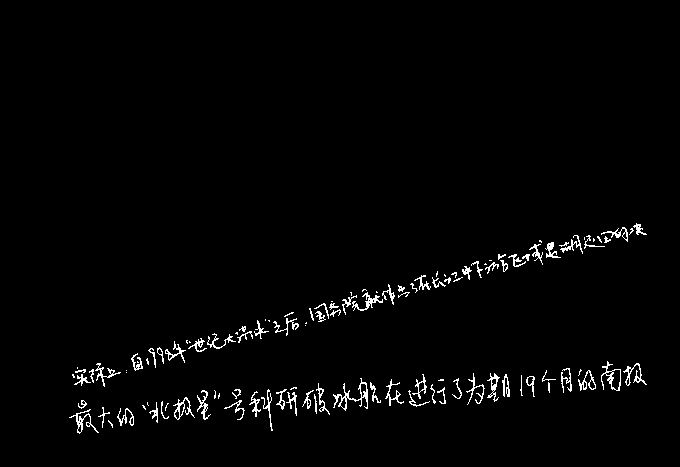 实际上，自1998年“世纪大洪水”之后，国务院就作出了在长江中下游区域退田还湖的决
最大的“北极星”号科研破冰船在进行了为期19个月的南极